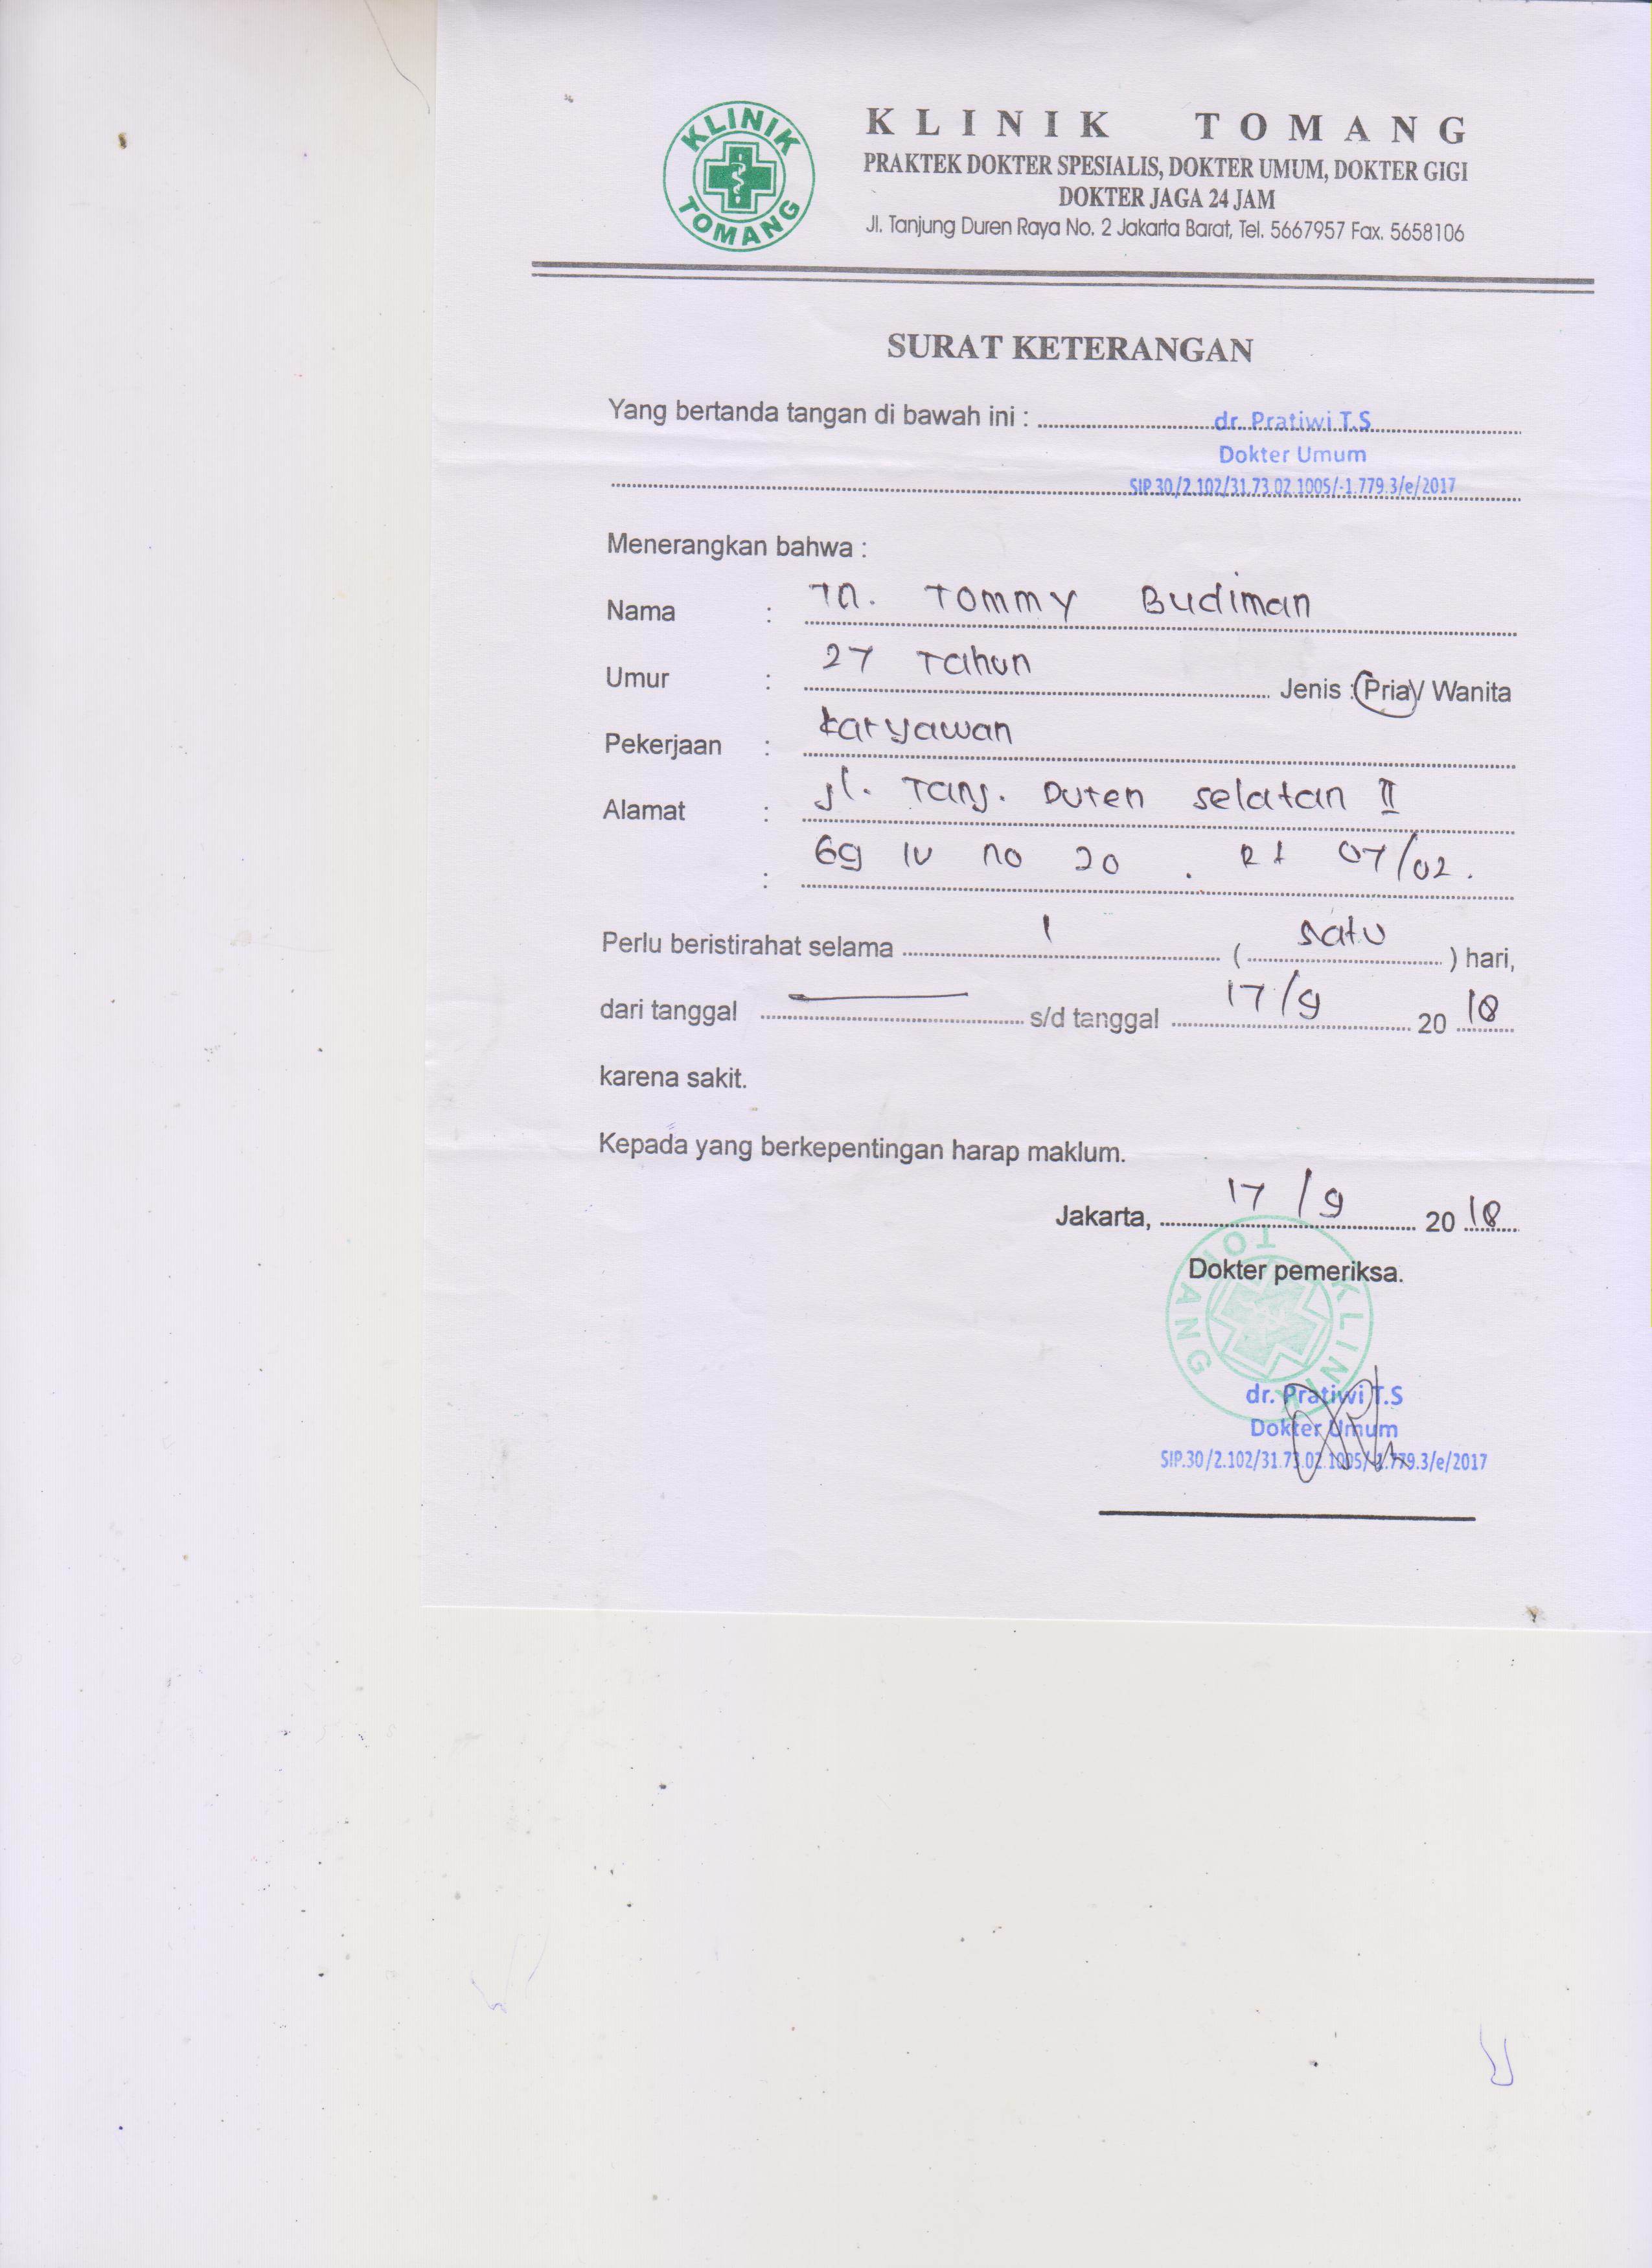 KLINIK TOMANG
KLINIK TOMANG
PRAKTEK DOKTER SPESIALIS, DOKTER UMUM, DOKTER GIGI
DOKTER JAGA 24 JAM
Jl. Tanjung Duren Raya No. 2 Jakarta Barat, Tel. 5667957 Fax. 5658106
SURAT KETERANGAN
Yang bertanda tangan di bawah ini : dr. Pratiwi T.S
Dokter Umum
SIP.30/2.102/31.73.02.1005/-1.779.3/e/2017
Menerangkan bahwa :
Nama : Tn. Tommy Budiman
Umur : 27 Tahun Jenis : Pria / Wanita
Pekerjaan : Karyawan
Alamat : Jl. Tanj. Duren Selatan II
: Gg IV no 20 . Rt 07/02.
Perlu beristirahat selama 1 ( satu ) hari,
dari tanggal — s/d tanggal 17/9 20 18
karena sakit.
Kepada yang berkepentingan harap maklum.
Jakarta, 17/9 20 18
Dokter pemeriksa.
KLINIK TOMANG
dr. Pratiwi T.S
Dokter Umum
SIP.30/2.102/31.73.02.1005/-1.779.3/e/2017